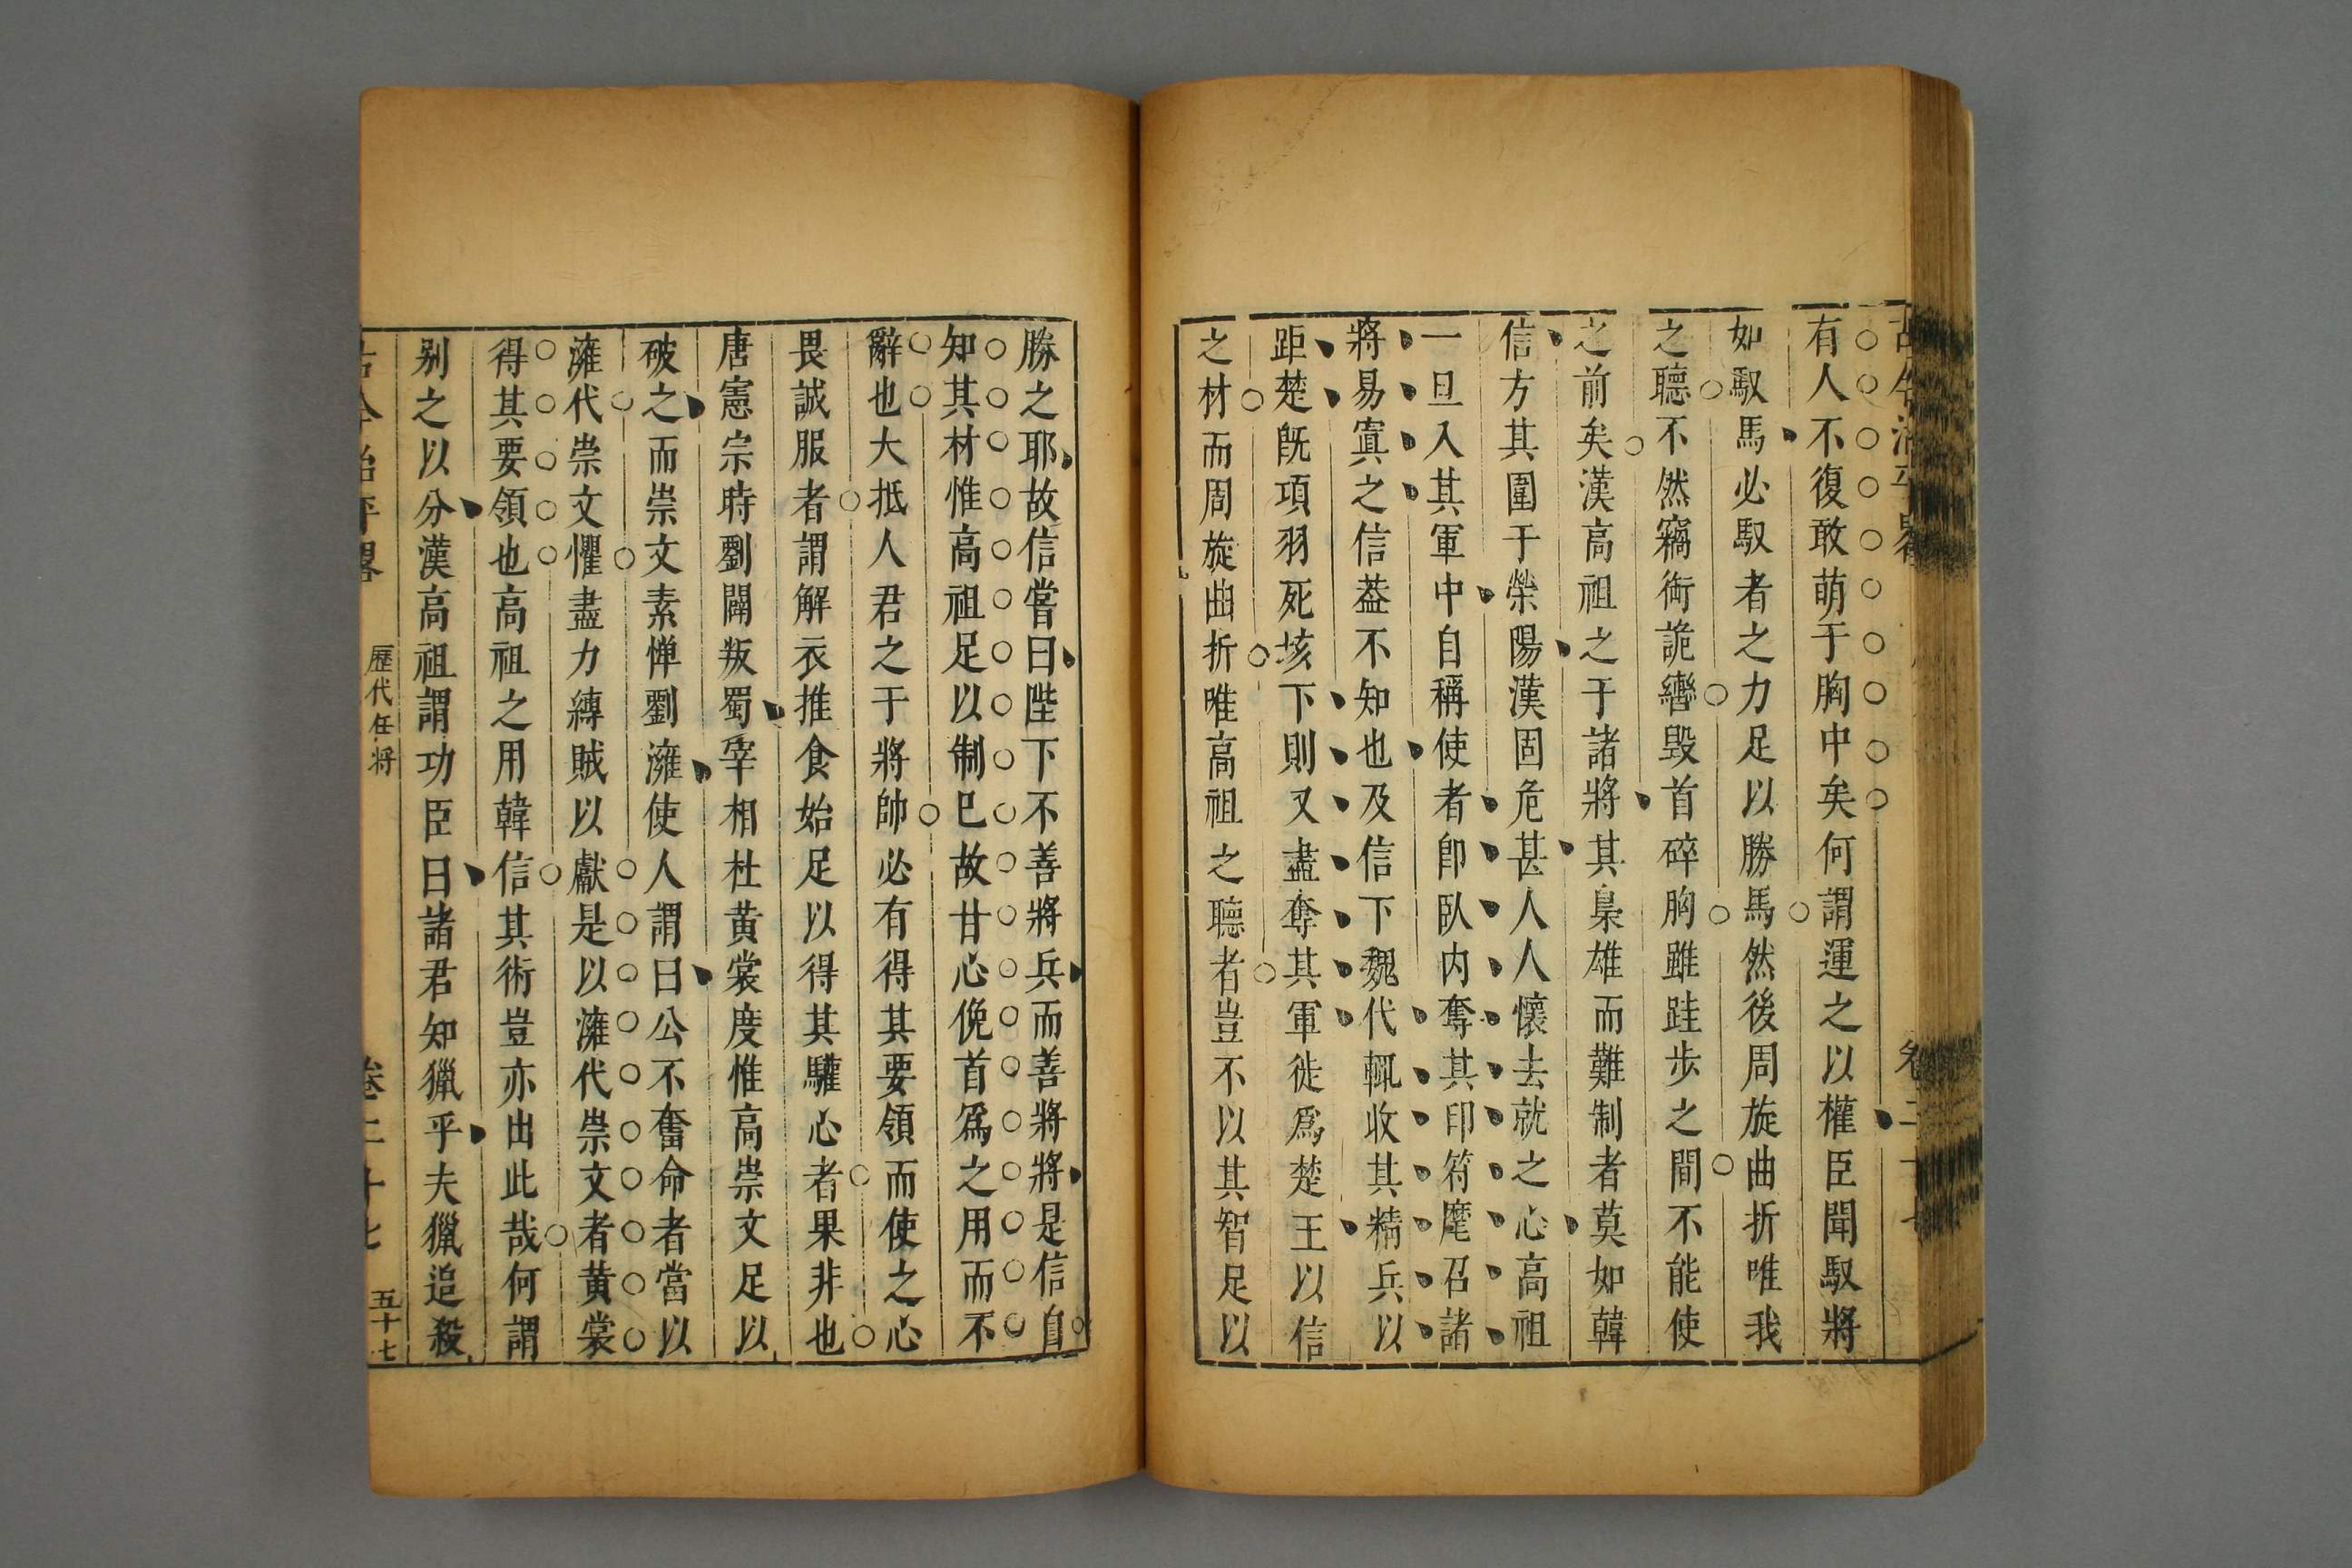 有人不復敢萌于胸中矣何謂運之以權臣聞馭將
如馭馬必馭者之力足以勝馬然後周旋曲折唯我
之聽不然竊銜詭轡毀首碎胸雖跬步之間不能使
之前矣漢高祖之于諸將其梟雄而難制者莫如韓
信方其圍于滎陽漢固危甚人人懷去就之心高祖
一旦入其軍中自稱使者卽臥内奪其印符麾召諸
將易寘之信葢不知也及信下魏代輒收其精兵以
距楚旣項羽死垓下則又盡奪其軍徙爲楚王以信
之材而周旋曲折唯高祖之聽者豈不以其智足以
勝之耶故信嘗曰陛下不善將兵而善將將是信自
知其材惟高祖足以制巳故甘心俛首爲之用而不
辭也大抵人君之于將帥必有得其要領而使之心
畏誠服者謂解衣推食始足以得其驩心者果非也
唐憲宗時劉闢叛蜀宰相杜黄裳度惟高崇文足以
破之而崇文素惮劉澭使人謂曰公不奮命者當以
澭代崇文懼盡力縛賊以獻是以澭代崇文者黄裳
得其要領也高祖之用韓信其術豈亦出此哉何謂
别之以分漢高祖謂功臣曰諸君知獵乎夫獵追殺
古今治平畧 歷代任將 卷二十七 五十七